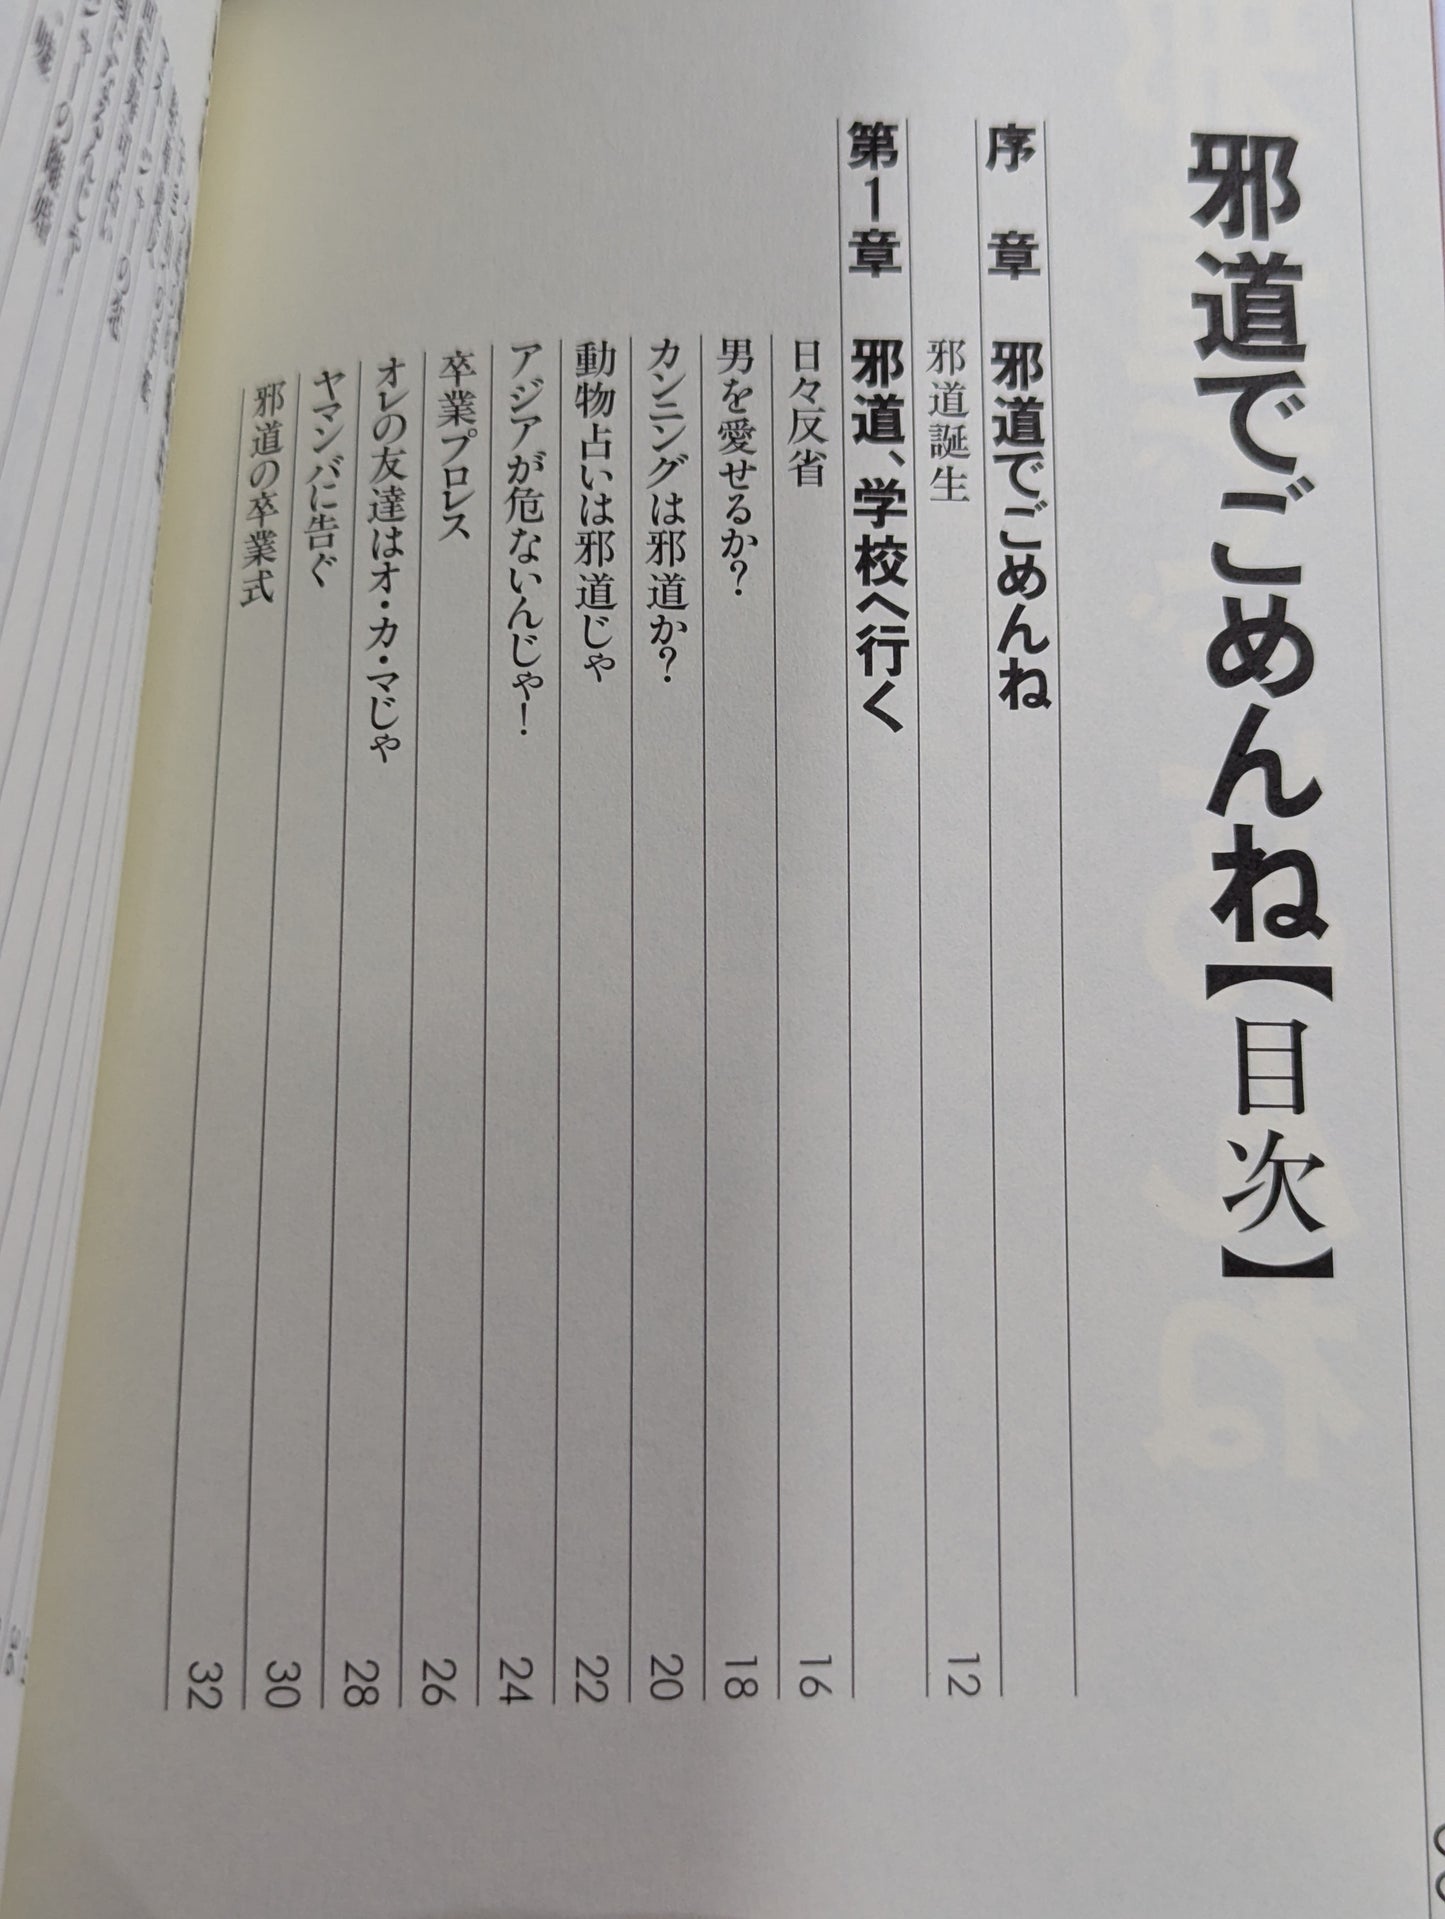 邪道でごめんね【目次】
序章 邪道でごめんね
邪道誕生 12
第1章 邪道、学校へ行く
日々反省 16
男を愛せるか? 18
カンニングは邪道か? 20
動物占いは邪道じゃ 22
アジアが危ないんじゃ! 24
卒業プロレス 26
オレの友達はオ・カ・マじゃ 28
ヤマンバに告ぐ 30
邪道の卒業式 32